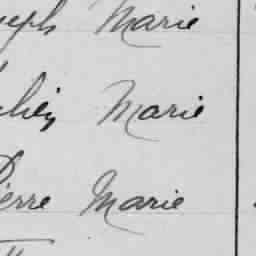 seph Marie
Marie
Pierre Marie